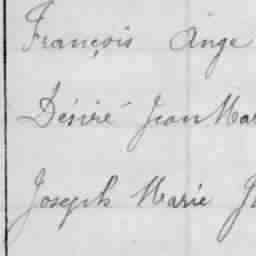 François Ange
Désiré Jean Mar
Joseph Marie